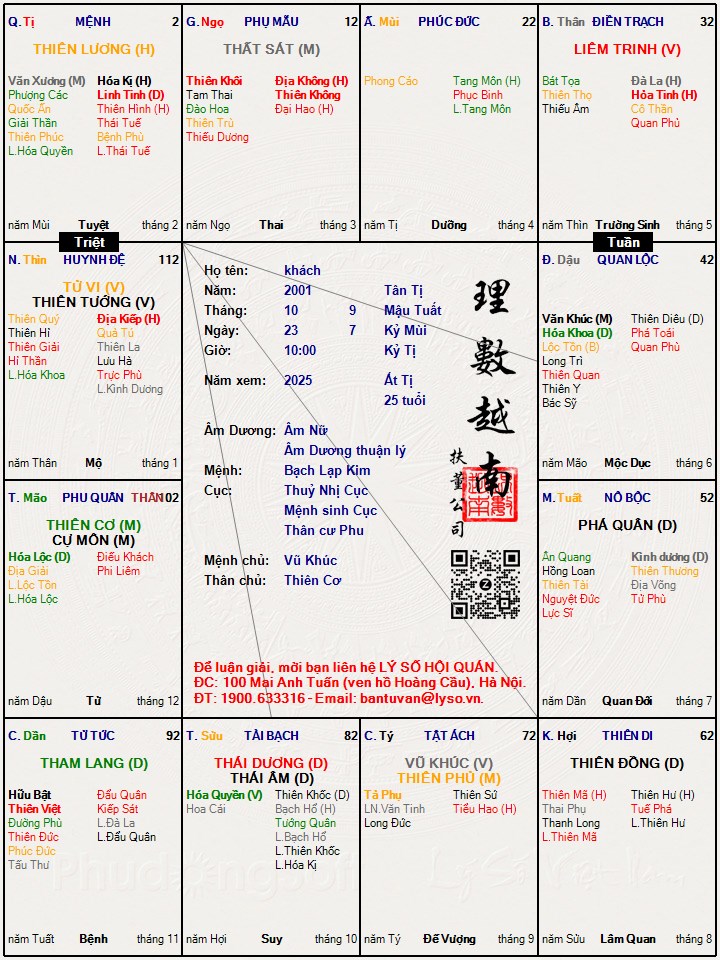 Q. Tị MỆNH 2
THIÊN LƯƠNG (H)
Văn Xương (M) Hóa Kị (H)
Phượng Các Linh Tinh (D)
Quốc Ấn Thiên Hình (H)
Giải Thần Thái Tuế
Thiên Phúc Bệnh Phù
L.Hóa Quyền L.Thái Tuế
năm Mùi Tuyệt tháng 2
G. Ngọ PHỤ MẪU 12
THẤT SÁT (M)
Thiên Khôi Địa Không (H)
Tam Thai Thiên Không
Đào Hoa Đại Hao (H)
Thiên Trù
Thiếu Dương
năm Ngọ Thai tháng 3
Ấ. Mùi PHÚC ĐỨC 22
Phong Cáo Tang Môn (H)
Phục Binh
L.Tang Môn
năm Tị Dưỡng tháng 4
B. Thân ĐIỀN TRẠCH 32
LIÊM TRINH (V)
Bát Tọa Đà La (H)
Thiên Thọ Hỏa Tinh (H)
Thiếu Âm Cô Thần
Quan Phủ
năm Thìn Trường Sinh tháng 5
Triệt
Tuần
N. Thìn HUYNH ĐỆ 112
TỬ VI (V)
THIÊN TƯỚNG (V)
Thiên Quý Địa Kiếp (H)
Thiên Hỉ Quả Tú
Thiên Giải Thiên La
Hỉ Thần Lưu Hà
L.Hóa Khoa Trực Phù
L.Kình Dương
năm Thân Mộ tháng 1
Họ tên: khách
Năm: 2001 Tân Tị
Tháng: 10 9 Mậu Tuất
Ngày: 23 7 Kỷ Mùi
Giờ: 10:00 Kỷ Tị
Năm xem: 2025 Ất Tị
25 tuổi
Âm Dương: Âm Nữ
Âm Dương thuận lý
Mệnh: Bạch Lạp Kim
Cục: Thuỷ Nhị Cục
Mệnh sinh Cục
Thân cư Phu
Mệnh chủ: Vũ Khúc
Thân chủ: Thiên Cơ
理數越南
扶董公司
Để luận giải, mời bạn liên hệ LÝ SỐ HỘI QUÁN.
ĐC: 100 Mai Anh Tuấn (ven hồ Hoàng Cầu), Hà Nội.
ĐT: 1900.633316 - Email: bantuvan@lyso.vn.
Đ. Dậu QUAN LỘC 42
Văn Khúc (M) Thiên Diêu (D)
Hóa Khoa (D) Phá Toái
Lộc Tồn (B) Quan Phù
Long Trì
Thiên Quan
Thiên Y
Bác Sỹ
năm Mão Mộc Dục tháng 6
T. Mão PHU QUÂN THÂN 102
THIÊN CƠ (M)
CỰ MÔN (M)
Hóa Lộc (D) Điếu Khách
Địa Giải Phi Liêm
L.Lộc Tồn
L.Hóa Lộc
năm Dậu Tử tháng 12
M. Tuất NÔ BỘC 52
PHÁ QUÂN (D)
Ân Quang Kình dương (D)
Hồng Loan Thiên Thương
Thiên Tài Địa Võng
Nguyệt Đức Tử Phù
Lực Sĩ
năm Dần Quan Đới tháng 7
C. Dần TỬ TỨC 92
THAM LANG (D)
Hữu Bật Đẩu Quân
Thiên Việt Kiếp Sát
Đường Phù L.Đà La
Thiên Đức L.Đẩu Quân
Phúc Đức
Tấu Thư
năm Tuất Bệnh tháng 11
T. Sửu TÀI BẠCH 82
THÁI DƯƠNG (D)
THÁI ÂM (D)
Hóa Quyền (V) Thiên Khốc (D)
Hoa Cái Bạch Hổ (H)
Tướng Quân
L.Bạch Hổ
L.Thiên Khốc
L.Hóa Kị
năm Hợi Suy tháng 10
C. Tý TẬT ÁCH 72
VŨ KHÚC (V)
THIÊN PHỦ (M)
Tả Phụ Thiên Sứ
LN.Văn Tinh Tiểu Hao (H)
Long Đức
năm Tý Đế Vượng tháng 9
K. Hợi THIÊN DI 62
THIÊN ĐỒNG (D)
Thiên Mã (H) Thiên Hư (H)
Thai Phụ Tuế Phá
Thanh Long L.Thiên Hư
L.Thiên Mã
năm Sửu Lâm Quan tháng 8